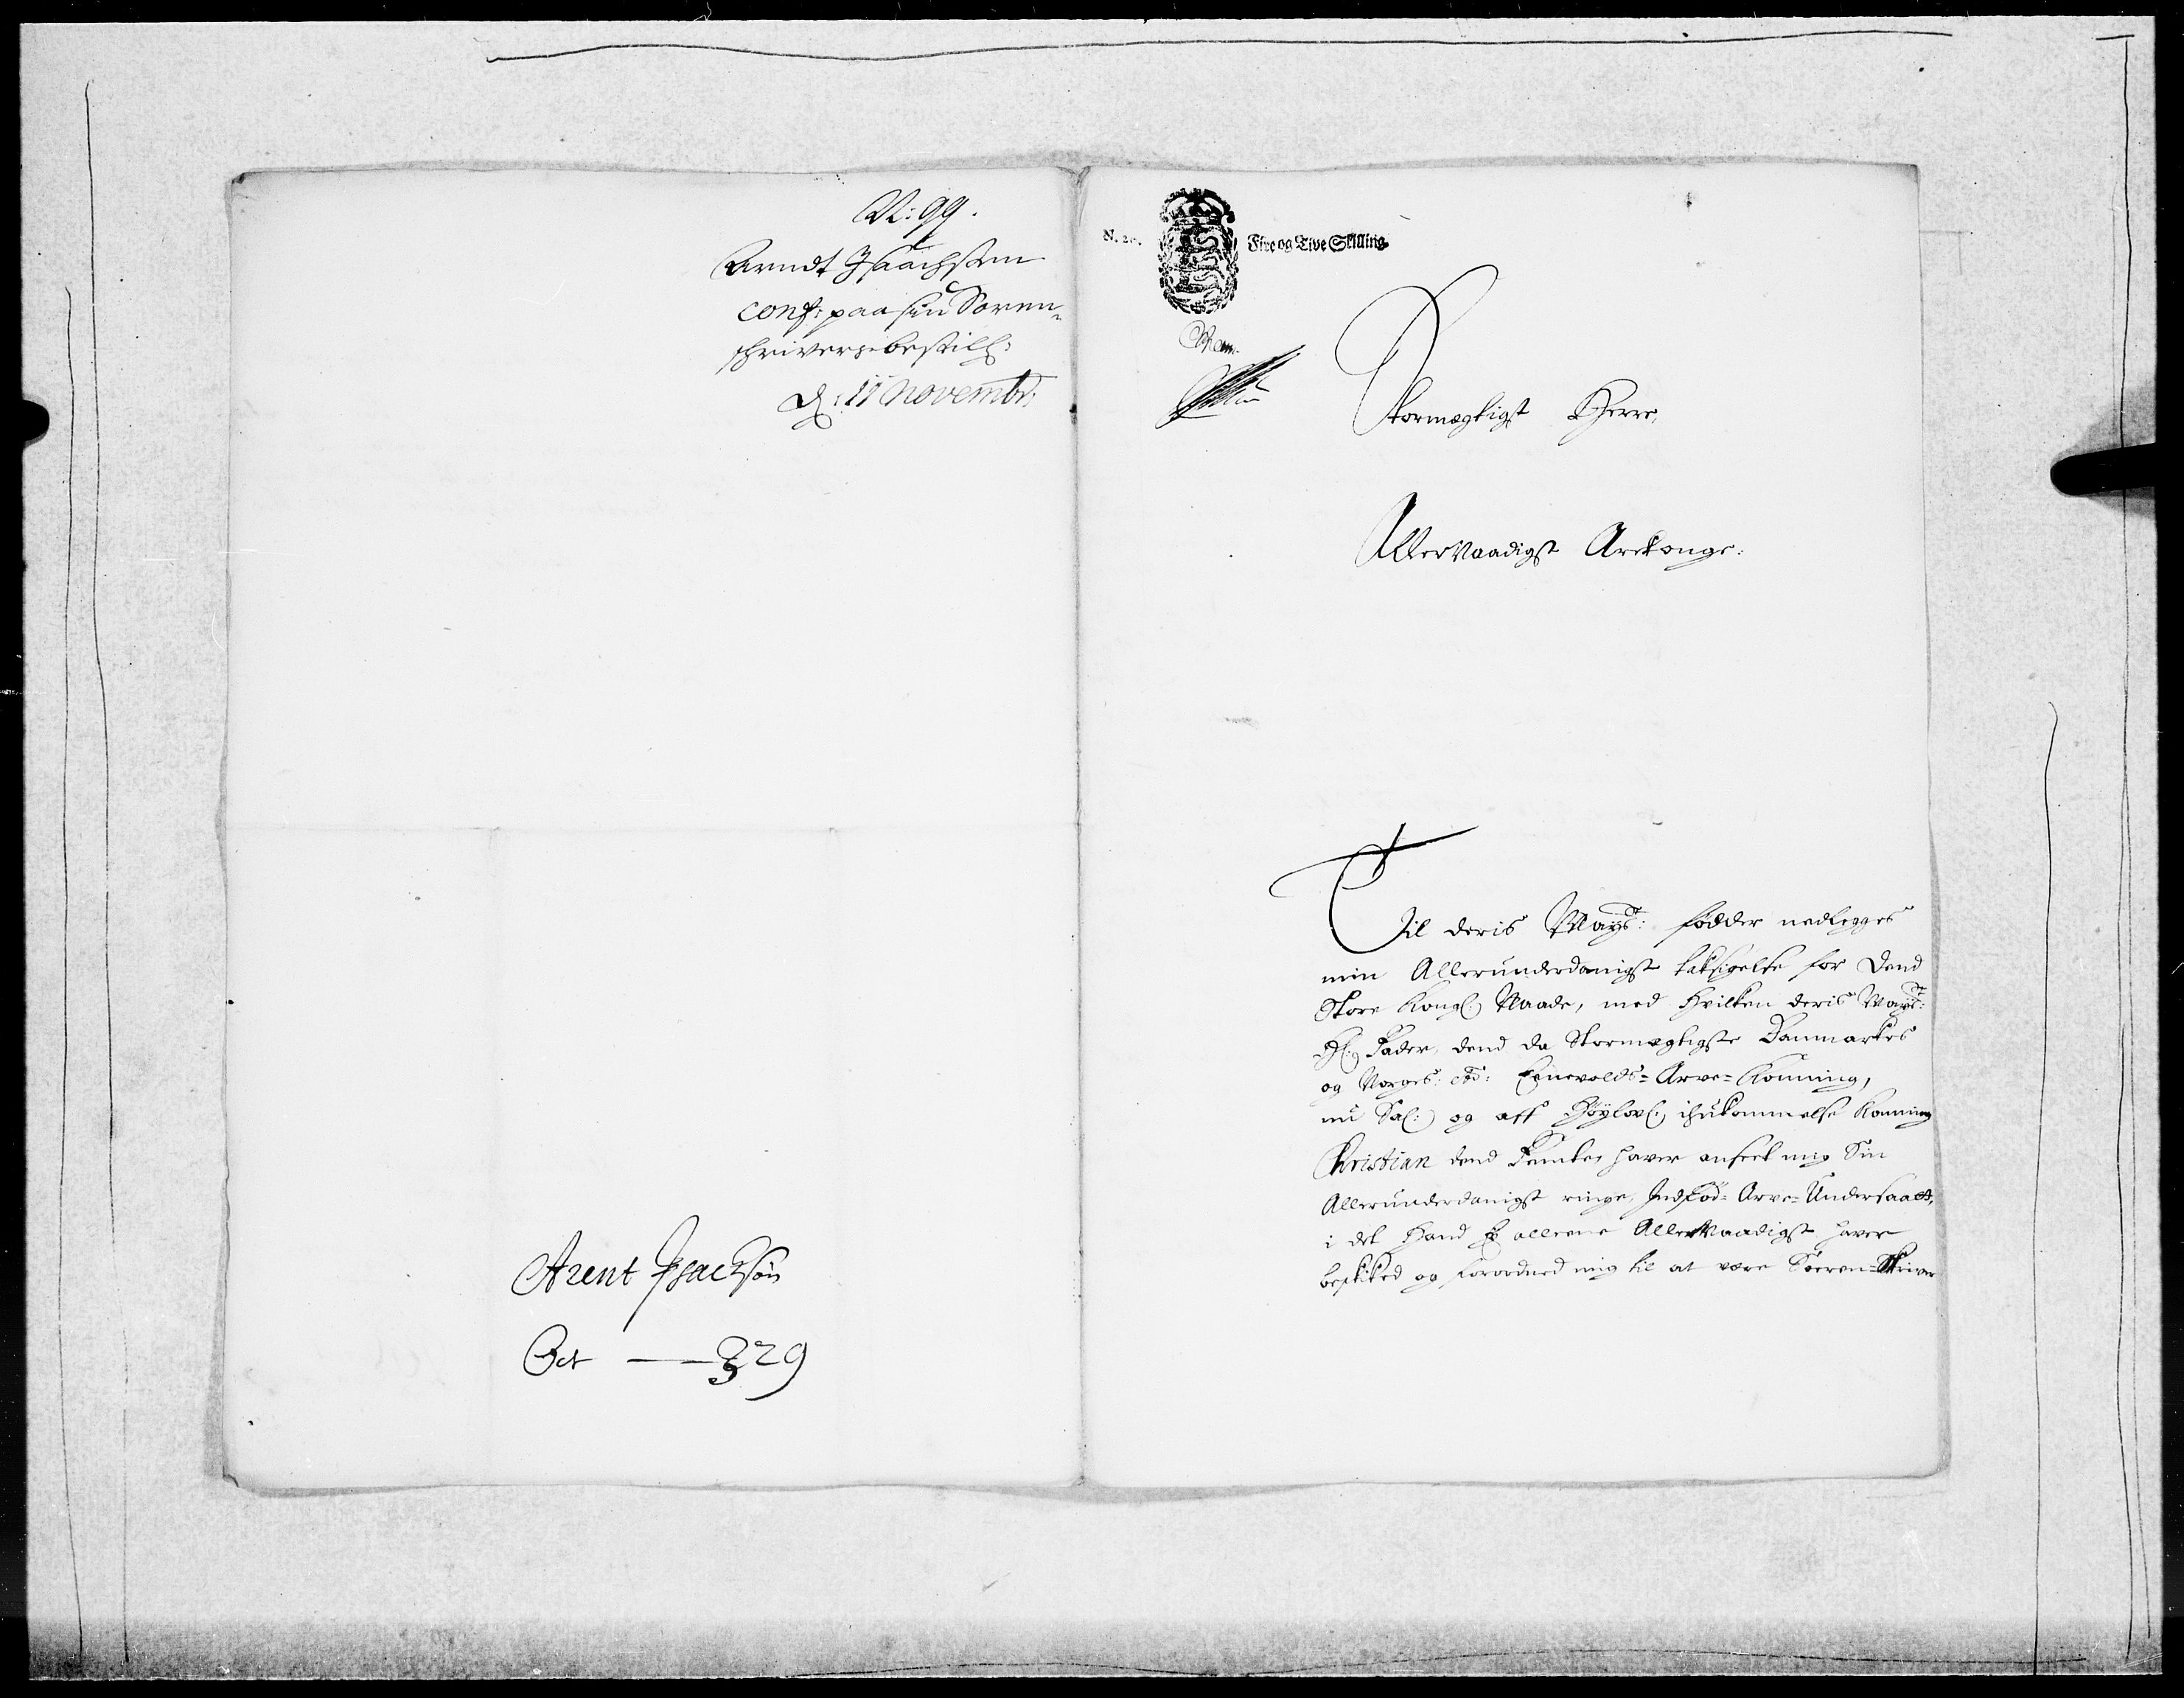 N: 99.
Arndt Isaachsen
conf: paa sin Soren-
schriver bestill:
d: 11 Novembr:
Arent Isachsøn
Oct — 329
N. 20.
Fire og Tive Skilling
Stormegtigst Herre,
Allernaadigst Arfkonge:
Til deris Mayst: födder nedlegges
min Allerunderdanigst taksigelse for dend
Store Kongl: Naade, med hvilken deris Mayst:
Hl: Fader, dend da Stormegtigste Danmarkes
og Norges: etc: Eenevolds= Arve= Konning,
nu Sal: og aff Höylovl: ihukommelse Konning
Christian dend Femte, haver anseet mig Sin
Allerunderdanigst ringe, Indföd= Arve= Undersaatt,
i det Hand alleene Allernaadigst haver
beskiked og forordned mig til at være Soeren=Skriver